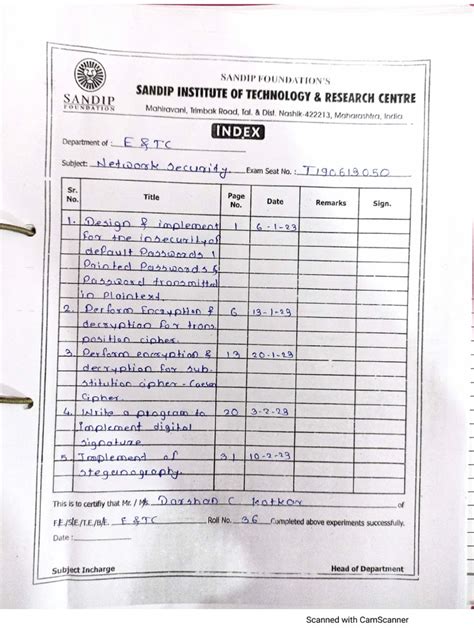 SANDIP FOUNDATION'S
SANDIP INSTITUTE OF TECHNOLOGY & RESEARCH CENTRE
SANDIP
FOUNDATION
Mahiravani, Trimbak Road, Tal. & Dist. Nashik-422213, Maharashtra, India
INDEX
Department of : E & TC
Subject: Network Security. Exam Seat No. : T190613050
Sr. No. Title Page No. Date Remarks Sign.
1. Design & implement 1 6-1-23
for the insecurity of
default Passwords,
Painted Passwords &
Password transmitted
in Plaintext.
2. Perform Encryption & 6 13-1-23
decryption for trans
position cipher.
3. Perform encryption & 13 20-1-23
decryption for sub.
stitution cipher - Caesar
Cipher.
4. Write a program to 20 3-2-23
Implement digital
signature.
5. Implement of 31 10-2-23
steganography.
This is to certifiy that Mr. / Ms. Darshan C Katkar of
F.E/S.E/T.E/B.E. E & TC Roll No. 36 Completed above experiments successfully.
Date :
Subject Incharge Head of Department
Scanned with CamScanner